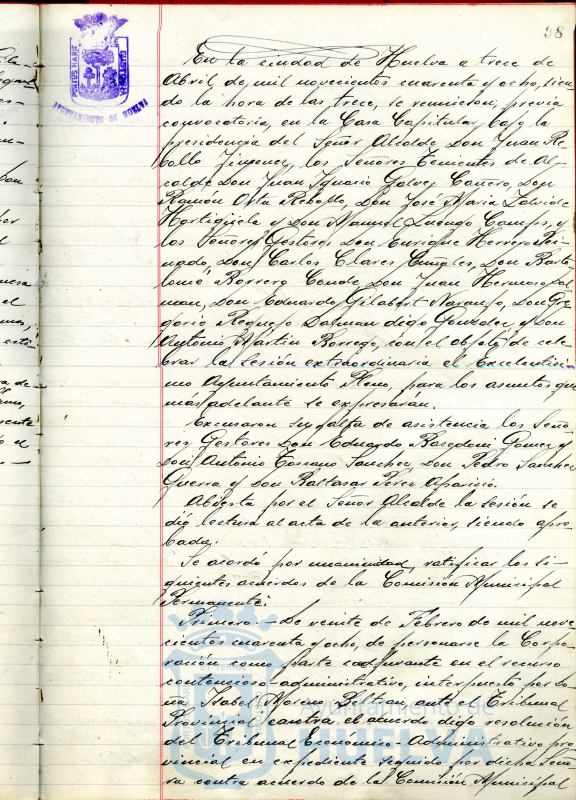 38
PORTUS MARIS
AYUNTAMIENTO DE HUELVA
En la ciudad de Huelva a trece de
Abril de mil novecientos cuarenta y ocho, sien-
do la hora de las trece, se reunieron, previa
convocatoria, en la Casa Capitular, bajo la
presidencia del Señor Alcalde Don Juan Re-
bollo Jimenez, los Señores Tenientes de Al-
calde Don Juan Ignacio Galvez Cañero, Don
Ramón Rebollo, Don José Maria
y Don Manuel Luengo Campos, y
los Señores Gestores Don Enrique Herrero Rei-
nado, Don Carlos Clares Don Barto-
lomé Borrero Conde, Don Juan Hermoso Pal
man, Don Eduardo Gilabert Naranjo, Don Gre-
gorio Requejo digo Gonzalez, y Don
Antonio Martin Borrego, con el objeto de cele-
brar la sesión extraordinaria el Excelentisi-
mo Ayuntamiento Pleno, para los asuntos que
mas adelante se expresarán.
Excusaron su falta de asistencia los Seño-
res Gestores Don Eduardo Gomez y
Don Antonio Toscano Sanchez, Don Pedro Sanchez
Guerra y Don Baltasar Perez Aparicio.
Abierta por el Señor Alcalde la sesión se
dió lectura al acta de la anterior, siendo apro-
bada.
Se acordó por unanimidad, ratificar los si-
guientes acuerdos de la Comisión Municipal
Permanente:
Primero.- De veinte de Febrero de mil nove-
cientos cuarenta y ocho, de personarse la Corpo-
ración como parte coadyuvante en el recurso
contencioso-administrativo, interpuesto por Do-
ña Isabel Moreno Beltrán, ante el Tribunal
Provincial, contra el acuerdo digo resolución
del Tribunal Economico-Administrativo pro-
vincial en expediente seguido por dicha Seño-
ra contra acuerdo de la Comisión Municipal
Ayuntamiento de
HUELVA